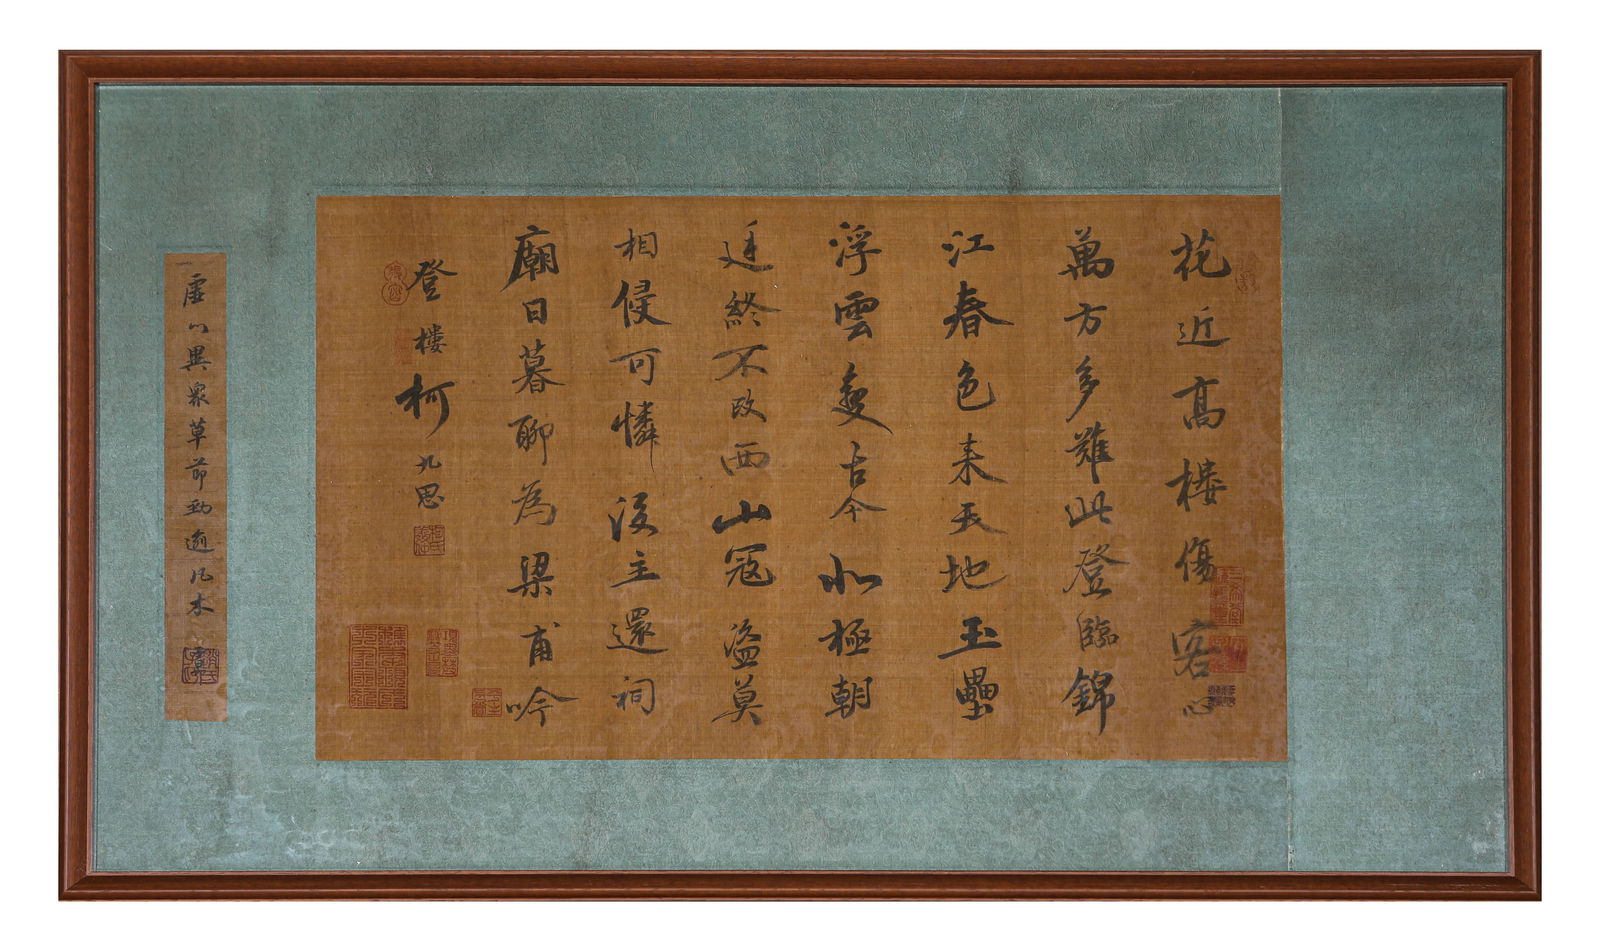 花近高樓傷客心
萬方多難此登臨錦
江春色来天地玉壘
浮雲變古今北極朝
廷終不改西山寇盗莫
相侵可憐後主還祠
廟日暮聊為梁甫吟
登樓柯九思
虛心異衆草節勁逾凡木